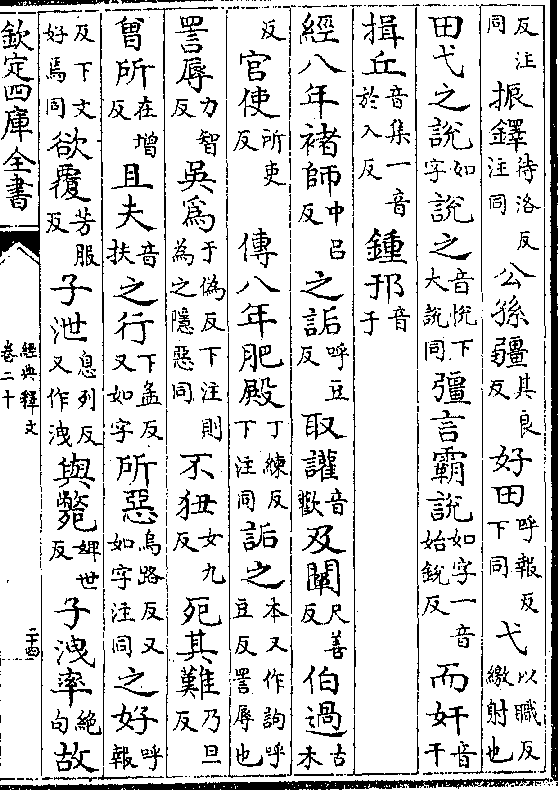 反注同振鐸待洛反注同公孫疆其良反好田呼報反下同弋以職反繳射也
田弋之說如字說之音悅下大說同彊言霸說如字一音始銳反而奸音干
揖丘音集一音於入反鍾邘音于
經八年褚師中呂反之詬呼豆反取讙音歡及闡尺善反伯過古禾
反官使所吏反傳八年肥殿丁練反下注同詬之本又作訽呼豆反詈辱也
詈辱力智反吳為于偽反下注則為之隱惡同不狃女九反死其難乃旦反
曾所在增反且夫音扶之行下孟反又如字所惡烏路反又如字注同之好呼報
反下文好焉同欲覆芳服反子泄息列反又作洩與斃婢世反子洩率絕句故
欽定四庫全書
經典釋文
卷二十
二十四